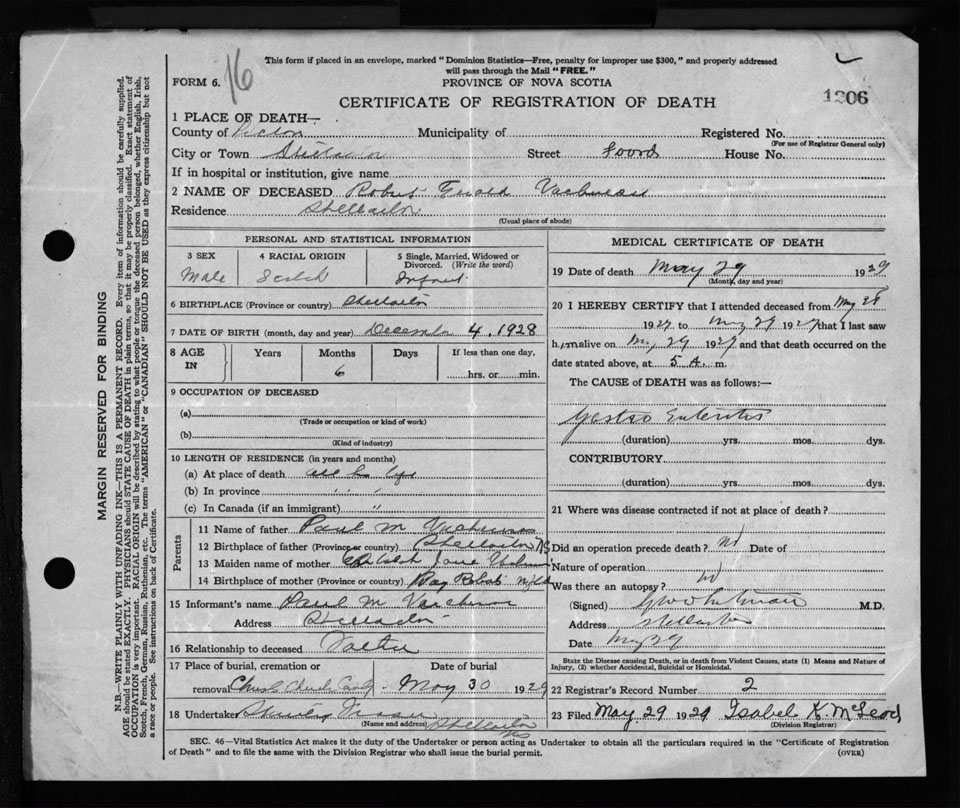 This form if placed in an envelope, marked "Dominion Statistics—Free, penalty for improper use $300," and properly addressed
will pass through the Mail "FREE."
FORM 6.
16
PROVINCE OF NOVA SCOTIA
CERTIFICATE OF REGISTRATION OF DEATH
1306
1 PLACE OF DEATH—
County of Pictou Municipality of Registered No.
(For use of Registrar General only)
City or Town Stellarton Street Foord House No.
If in hospital or institution, give name
2 NAME OF DECEASED Robert
Residence Stellarton
(Usual place of abode)
MARGIN RESERVED FOR BINDING
N.B.—WRITE PLAINLY WITH UNFADING INK—THIS IS A PERMANENT RECORD. Every item of information should be carefully supplied.
AGE should be stated EXACTLY. PHYSICIANS should STATE CAUSE OF DEATH in plain terms, so that it may be properly classified. Exact statement of
OCCUPATION is very important. RACIAL ORIGIN will be described by stating to what people or tongue the deceased person belonged, whether English, Irish,
Scotch, French, German, Russian, Ruthenian, etc. The terms "AMERICAN" or "CANADIAN" SHOULD NOT BE USED as they express citizenship but not
a race or people. See instructions on back of Certificate.
PERSONAL AND STATISTICAL INFORMATION
3 SEX
Male
4 RACIAL ORIGIN
Scotch
5 Single, Married, Widowed or
Divorced. (Write the word)
Infant
6 BIRTHPLACE (Province or country) Stellarton
7 DATE OF BIRTH (month, day and year) December 4, 1928
8 AGE
IN
Years
Months
6
Days
If less than one day,
hrs. or min.
9 OCCUPATION OF DECEASED
(a)
(Trade or occupation or kind of work)
(b)
(Kind of industry)
10 LENGTH OF RESIDENCE (in years and months)
(a) At place of death all his life
(b) In province " " "
(c) In Canada (if an immigrant) "
Parents
11 Name of father Paul M
12 Birthplace of father (Province or country) Stellarton NS
13 Maiden name of mother Jane
14 Birthplace of mother (Province or country) Bay Nfld
15 Informant's name Paul M
Address Stellarton
16 Relationship to deceased Father
17 Place of burial, cremation or
removal Christ Church Cemty Date of burial May 30 1929
18 Undertaker
(Name and address) Stellarton
NS
MEDICAL CERTIFICATE OF DEATH
19 Date of death May 29 1929
(Month, day and year)
20 I HEREBY CERTIFY that I attended deceased from May 28
1929 to May 29 1929 that I last saw
him alive on May 29 1929 and that death occurred on the
date stated above, at 5 A. m.
The CAUSE of DEATH was as follows:—
Gastro Enteritis
(duration) yrs. mos. dys.
CONTRIBUTORY
(duration) yrs. mos. dys.
21 Where was disease contracted if not at place of death?
Did an operation precede death? No Date of
Nature of operation
Was there an autopsy? No
(Signed) M.D.
Address Stellarton
Date May 29
State the Disease causing Death, or in death from Violent Causes, state (1) Means and Nature of
Injury, (2) whether Accidental, Suicidal or Homicidal.
22 Registrar's Record Number 2
23 Filed May 29 1929 Isobel K. McLeod
(Division Registrar)
SEC. 46—Vital Statistics Act makes it the duty of the Undertaker or person acting as Undertaker to obtain all the particulars required in the "Certificate of Registration
of Death" and to file the same with the Division Registrar who shall issue the burial permit. (OVER)